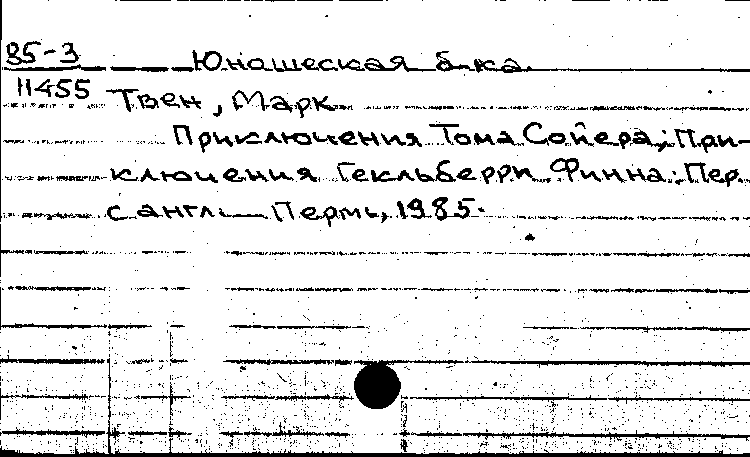 85-3
11455
Юношеская б-ка.
Твен, Марк
Приключения Тома Сойера; При-
ключения Гекльберри Финна: Пер.
с англ. — Пермь, 1985.